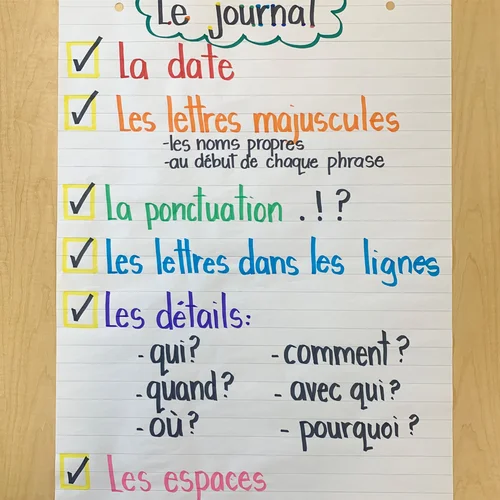 Le journal
La date
Les lettres majuscules
-les noms propres
-au début de chaque phrase
La ponctuation . ! ?
Les lettres dans les lignes
Les détails:
- qui? - comment ?
- quand? - avec qui?
- où? - pourquoi ?
Les espaces